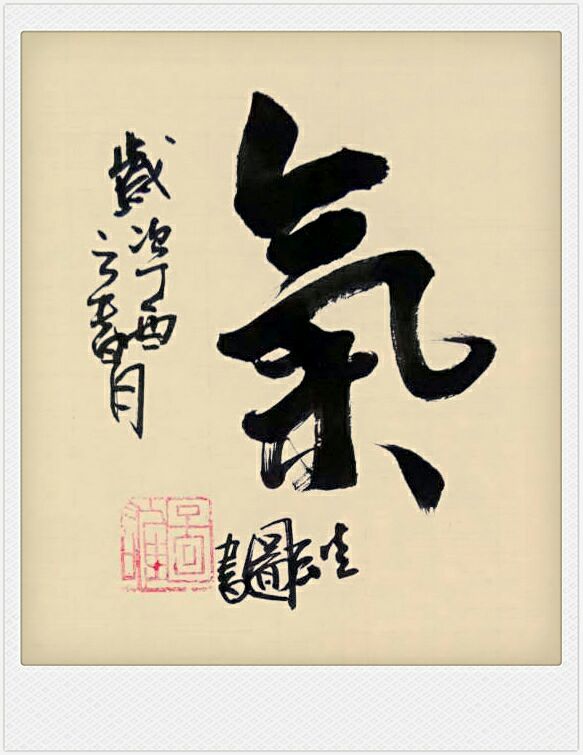 氣
歲次丁酉
之春月
書